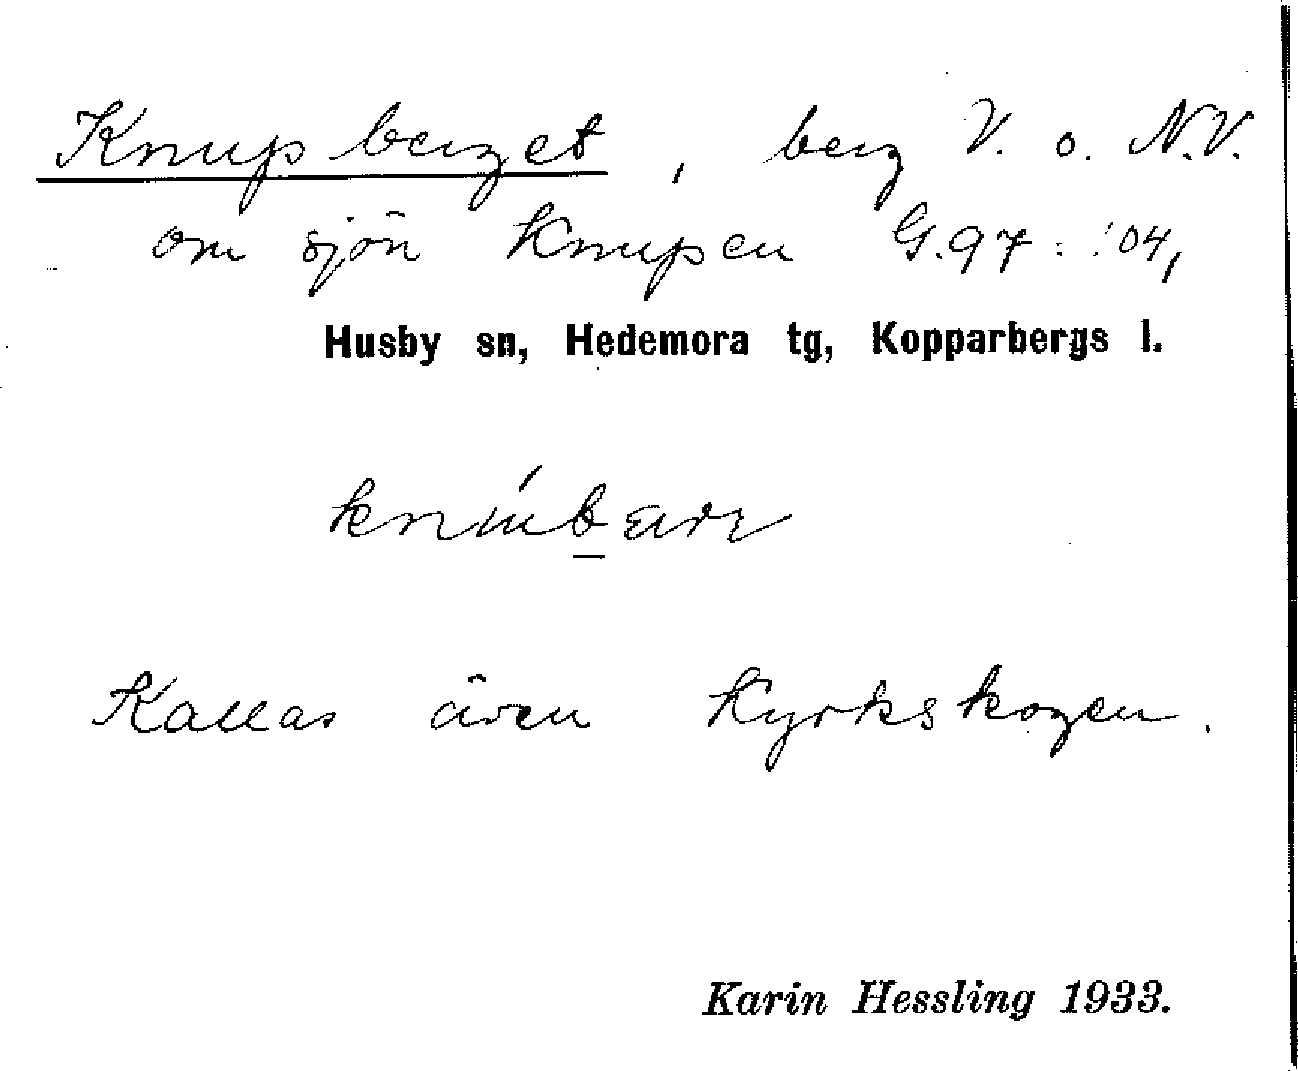 Knupberget, berg V. o. N.V.
om sjön Knupen G.97: :04,
Husby sn, Hedemora tg, Kopparbergs l.
Kallas även Kyrkskogen.
Karin Hessling 1933.